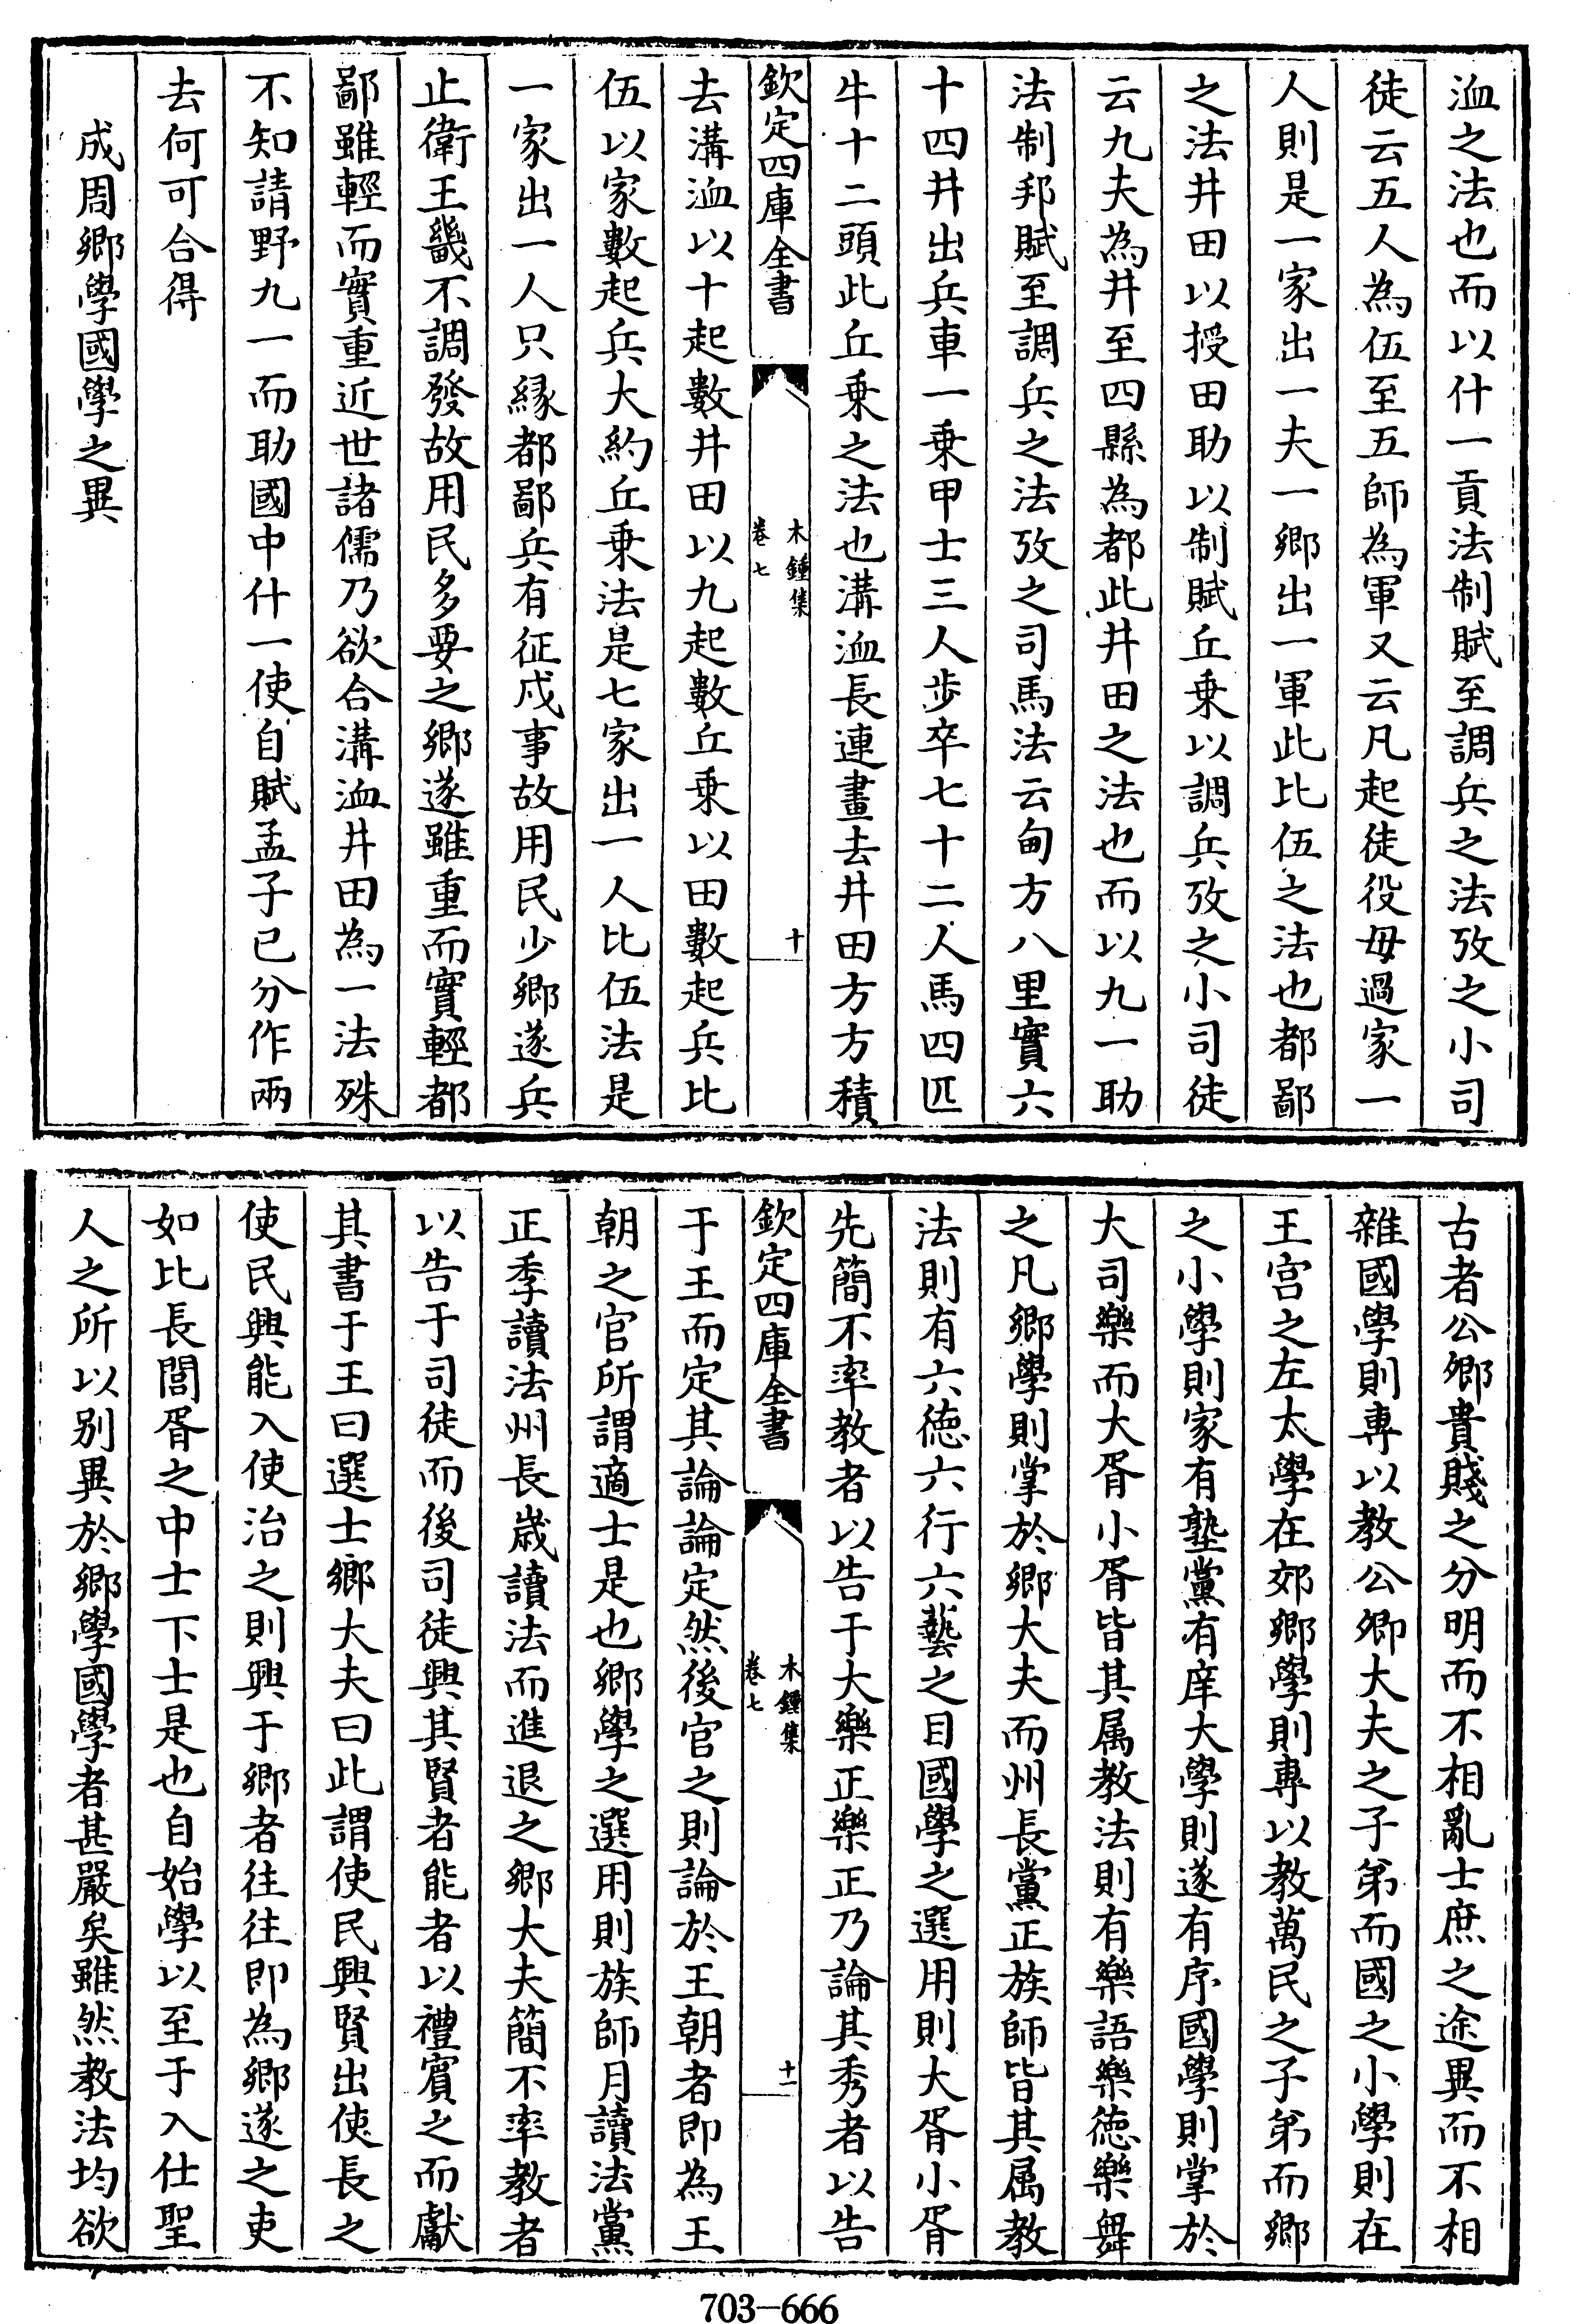 洫之法也而以什一貢法制賦至調兵之法攷之小司
徒云五人為伍至五師為軍又云凡起徒役毋過家一
人則是一家出一夫一鄉出一軍此比伍之法也都鄙
之法井田以授田助以制賦丘乗以調兵攷之小司徒
云九夫為井至四縣為都此井田之法也而以九一助
法制邦賦至調兵之法攷之司馬法云甸方八里實六
十四井出兵車一乗甲士三人歩卒七十二人馬四匹
牛十二頭此丘乗之法也溝洫長連畫去井田方方積
欽定四庫全書
木鍾集
卷七
十
去溝洫以十起數井田以九起數丘乗以田數起兵比
伍以家數起兵大約丘乗法是七家出一人比伍法是
一家出一人只縁都鄙兵有征戍事故用民少鄉遂兵
止衛王畿不調發故用民多要之鄉遂雖重而實輕都
鄙雖輕而實重近世諸儒乃欲合溝洫井田為一法殊
不知請野九一而助國中什一使自賦孟子已分作兩
去何可合得
成周鄉學國學之異
古者公卿貴賤之分明而不相亂士庶之途異而不相
雜國學則專以教公卿大夫之子弟而國之小學則在
王宫之左太學在郊鄉學則專以教萬民之子弟而鄉
之小學則家有塾黨有庠大學則遂有序國學則掌於
大司樂而大胥小胥皆其属教法則有樂語樂徳樂舞
之凡鄉學則掌於鄉大夫而州長黨正族師皆其属教
法則有六徳六行六藝之目國學之選用則大胥小胥
先簡不率教者以告于大樂正樂正乃論其秀者以告
欽定四庫全書
木鍾集
卷七
十一
于王而定其論論定然後官之則論於王朝者即為王
朝之官所謂適士是也鄉學之選用則族師月讀法黨
正季讀法州長歳讀法而進退之鄉大夫簡不率教者
以告于司徒而後司徒興其賢者能者以禮賓之而獻
其書于王曰選士鄉大夫曰此謂使民興賢出使長之
使民興能入使治之則興于鄉者往往即為鄉遂之吏
如比長閭胥之中士下士是也自始學以至于入仕聖
人之所以别異於鄉學國學者甚嚴矣雖然教法均欲
703-666